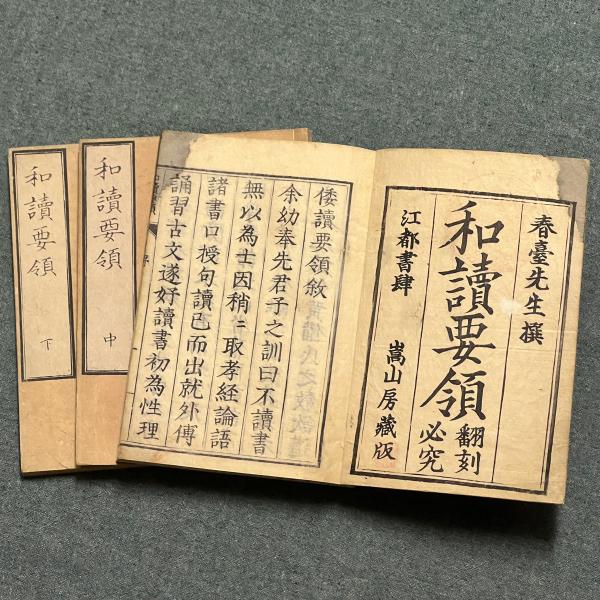 春臺先生撰
和讀要領
翻刻
必究
江都書肆
嵩山房藏版
倭讀要領敘
余幼奉先君子之訓曰不讀書
無以為士因稍〻取孝経論語
諸書口授句讀已而出就外傅
誦習古文遂好讀書初為性理
和讀要領
中
和讀要領
下